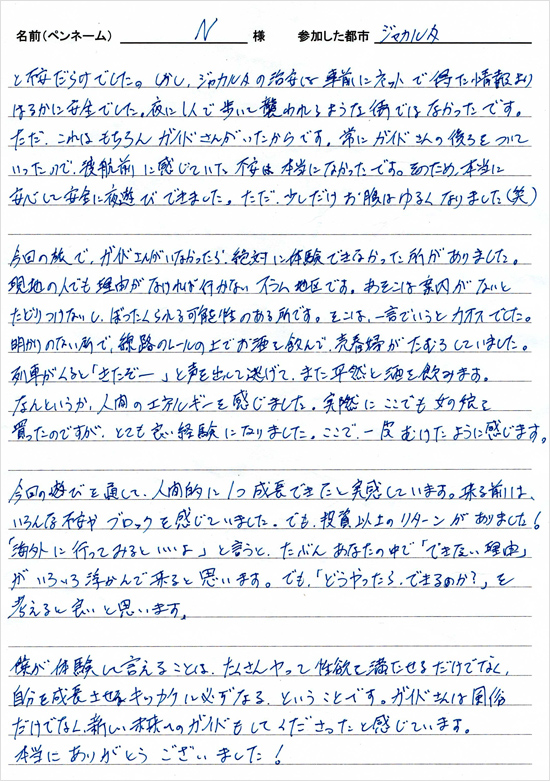 名前(ペンネーム) N 様 参加した都市 ジャカルタ
と不安だらけでした。しかし、ジャカルタの治安は事前にネットで得た情報より
はるかに安全でした。夜に1人で歩いて襲われるような街ではなかったです。
ただ、これはもちろんガイドさんがいたからです。常にガイドさんの後ろをついて
いったので、渡航前に感じていた不安は本当になかったです。そのため、本当に
安心して安全に夜遊びできました。ただ、少しだけお腹はゆるくなりました(笑)
今回の旅で、ガイドさんがいなかったら、絶対に体験できなかった所がありました。
現地の人でも理由がなければ行かないスラム地区です。あそこは案内がないと
たどりつけないし、ぼったくられる可能性のある所です。そこは、一言でいうとカオスでした。
明かりのない所で、線路のレールの上でお酒を飲んで、売春婦がたむろしていました。
列車がくると「きたぞー」と声を出して逃げて、また平然と酒を飲みます。
なんというか、人間のエネルギーを感じました。実際にここでも女の娘を
買ったのですが、とても良い経験になりました。ここで、一皮むけたように感じます。
今回の遊びを通して、人間的に1つ成長できたと実感しています。来る前は、
いろんな不安やブロックを感じていました。でも、投資以上のリターンがありました!
「海外に行ってみるといいよ」と言うと、たぶんあなたの中で「できない理由」
がいろいろ浮かんで来ると思います。でも、「どうやったら、できるのか?」を
考えると良いと思います。
僕が体験して言えることは、たくさんヤって性欲を満たせるだけでなく、
自分を成長させるキッカケに必ずなる、ということです。ガイドさんは風俗
だけでなく、新しい未来へのガイドもしてくださったと感じています。
本当にありがとうございました!